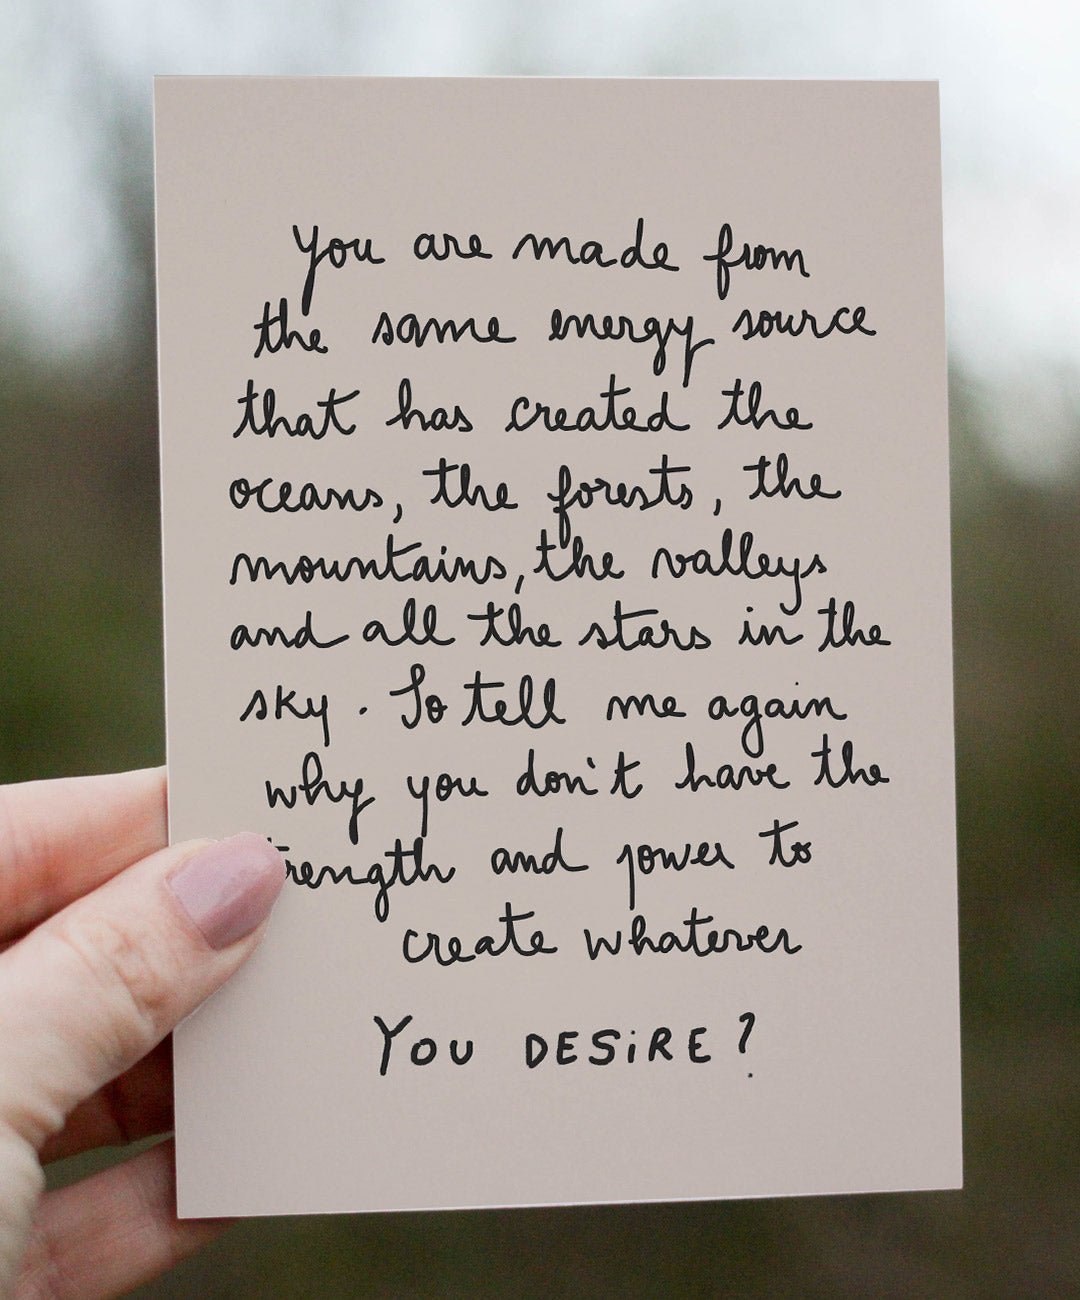 You are made from
the same energy source
that has created the
oceans, the forests, the
mountains, the valleys
and all the stars in the
sky. So tell me again
why you don't have the
trength and power to
create whatever
YOU DESiRE?